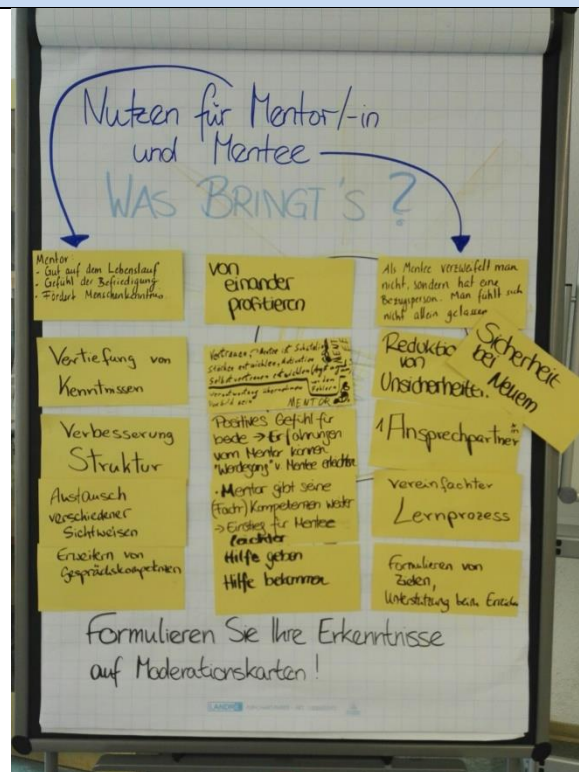 Nutzen für Mentor/-in
und Mentee
WAS BRINGT'S ?
Mentor:
- Gut auf dem Lebenslauf
- Gefühl der Befriedigung
- Fördert Menschenkenntnis
Vertiefung von
Kenntnissen
Verbesserung
Struktur
Austausch
verschiedener
Sichtweisen
Erweitern von
Gesprächskompetenzen
von
einander
profitieren
Vertrauen
Stärken entwickeln, Motivation
Selbstvertrauen entwickeln
Verantwortung übernehmen
Vorbild sein
MENTOR
MENTEE
Positives Gefühl für
beide → Erfahrungen
vom Mentor können
"Werdegang" v. Mentee erleichtern
· Mentor gibt seine
(Fach) Kompetenzen weiter
→ Einstieg für Mentee
leichter
Hilfe geben
Hilfe bekommen
Als Mentee verzweifelt man
nicht, sondern hat eine
Bezugsperson. Man fühlt sich
nicht allein gelassen
Reduktio
von
Unsicherheite.
Sicherheit
bei Neuem
1 Ansprechpartner
in
vereinfachter
Lernprozess
Formulieren von
Zielen,
Unterstützung beim
Formulieren Sie Ihre Erkenntnisse
auf Moderationskarten !